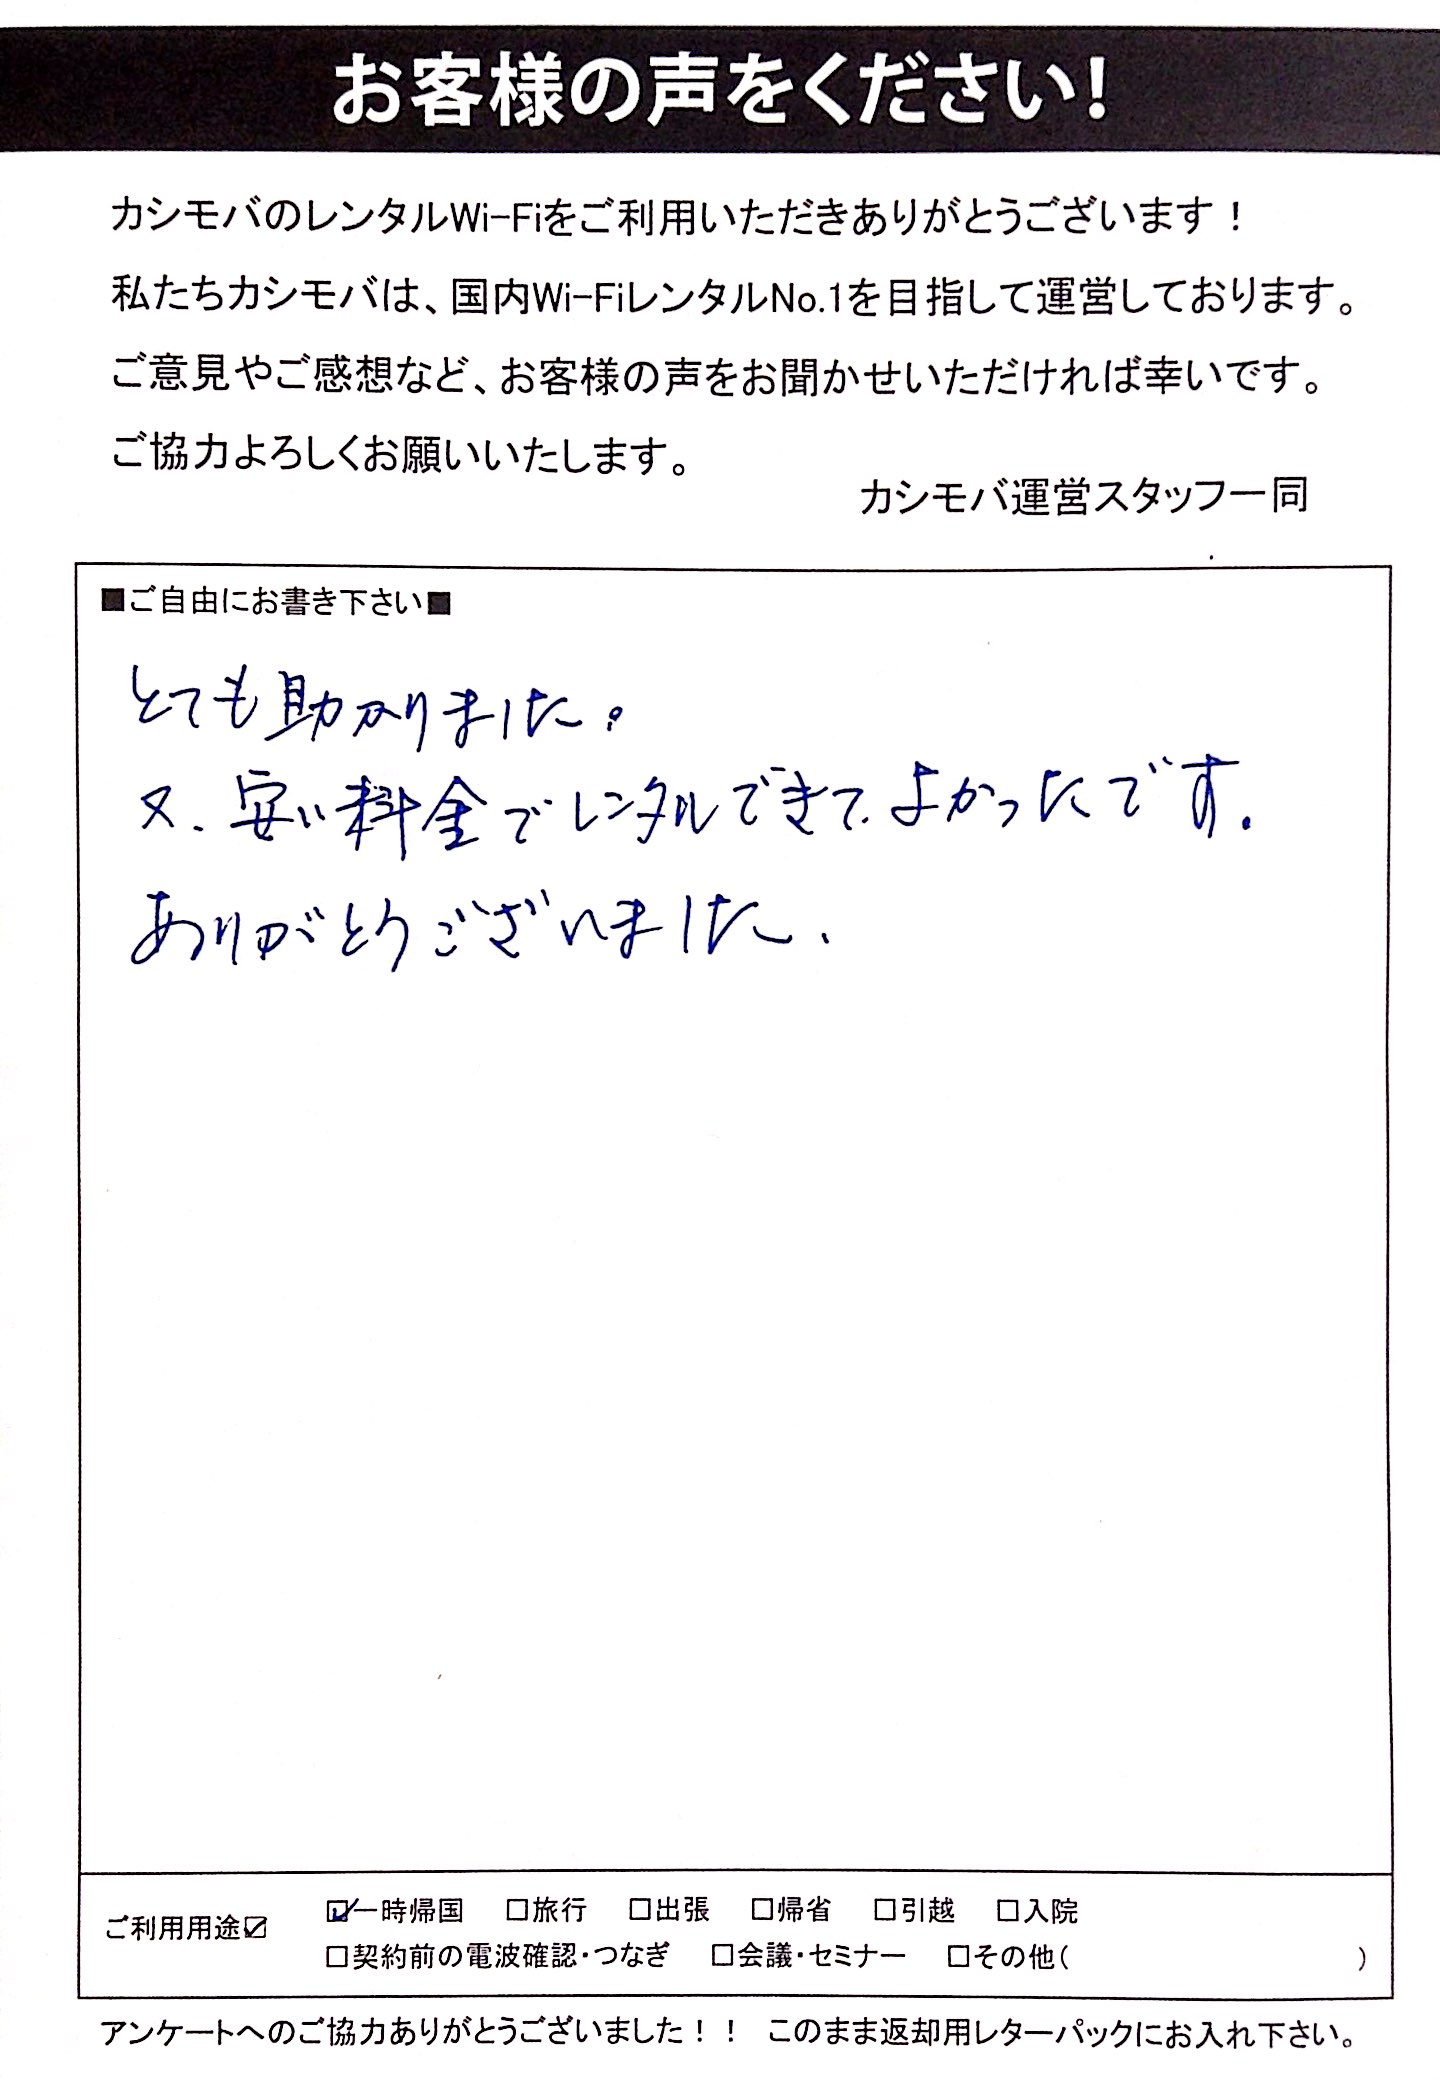 お客様の声をください!
カシモバのレンタルWi-Fiをご利用いただきありがとうございます！
私たちカシモバは、国内Wi-FiレンタルNo.1を目指して運営しております。
ご意見やご感想など、お客様の声をお聞かせいただければ幸いです。
ご協力よろしくお願いいたします。
カシモバ運営スタッフ一同
■ご自由にお書き下さい■
とても助かりました。
又、安い料金でレンタルできて、よかったです。
ありがとうございました。
ご利用用途☑ ☑一時帰国 □旅行 □出張 □帰省 □引越 □入院
□契約前の電波確認・つなぎ □会議・セミナー □その他( )
アンケートへのご協力ありがとうございました！！ このまま返却用レターパックにお入れ下さい。